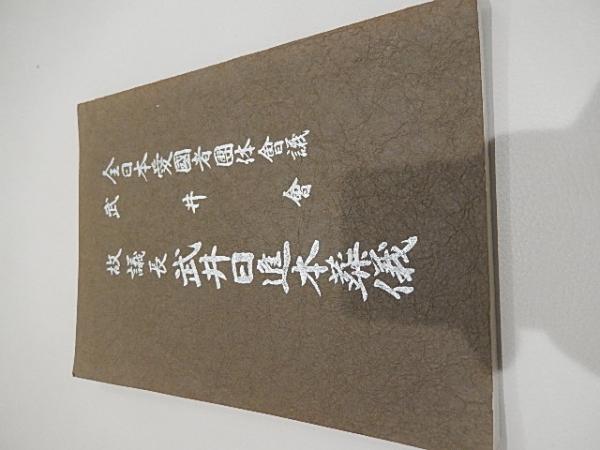 全日本愛國者團体會議
武井會
故議長 武井日進本葬儀